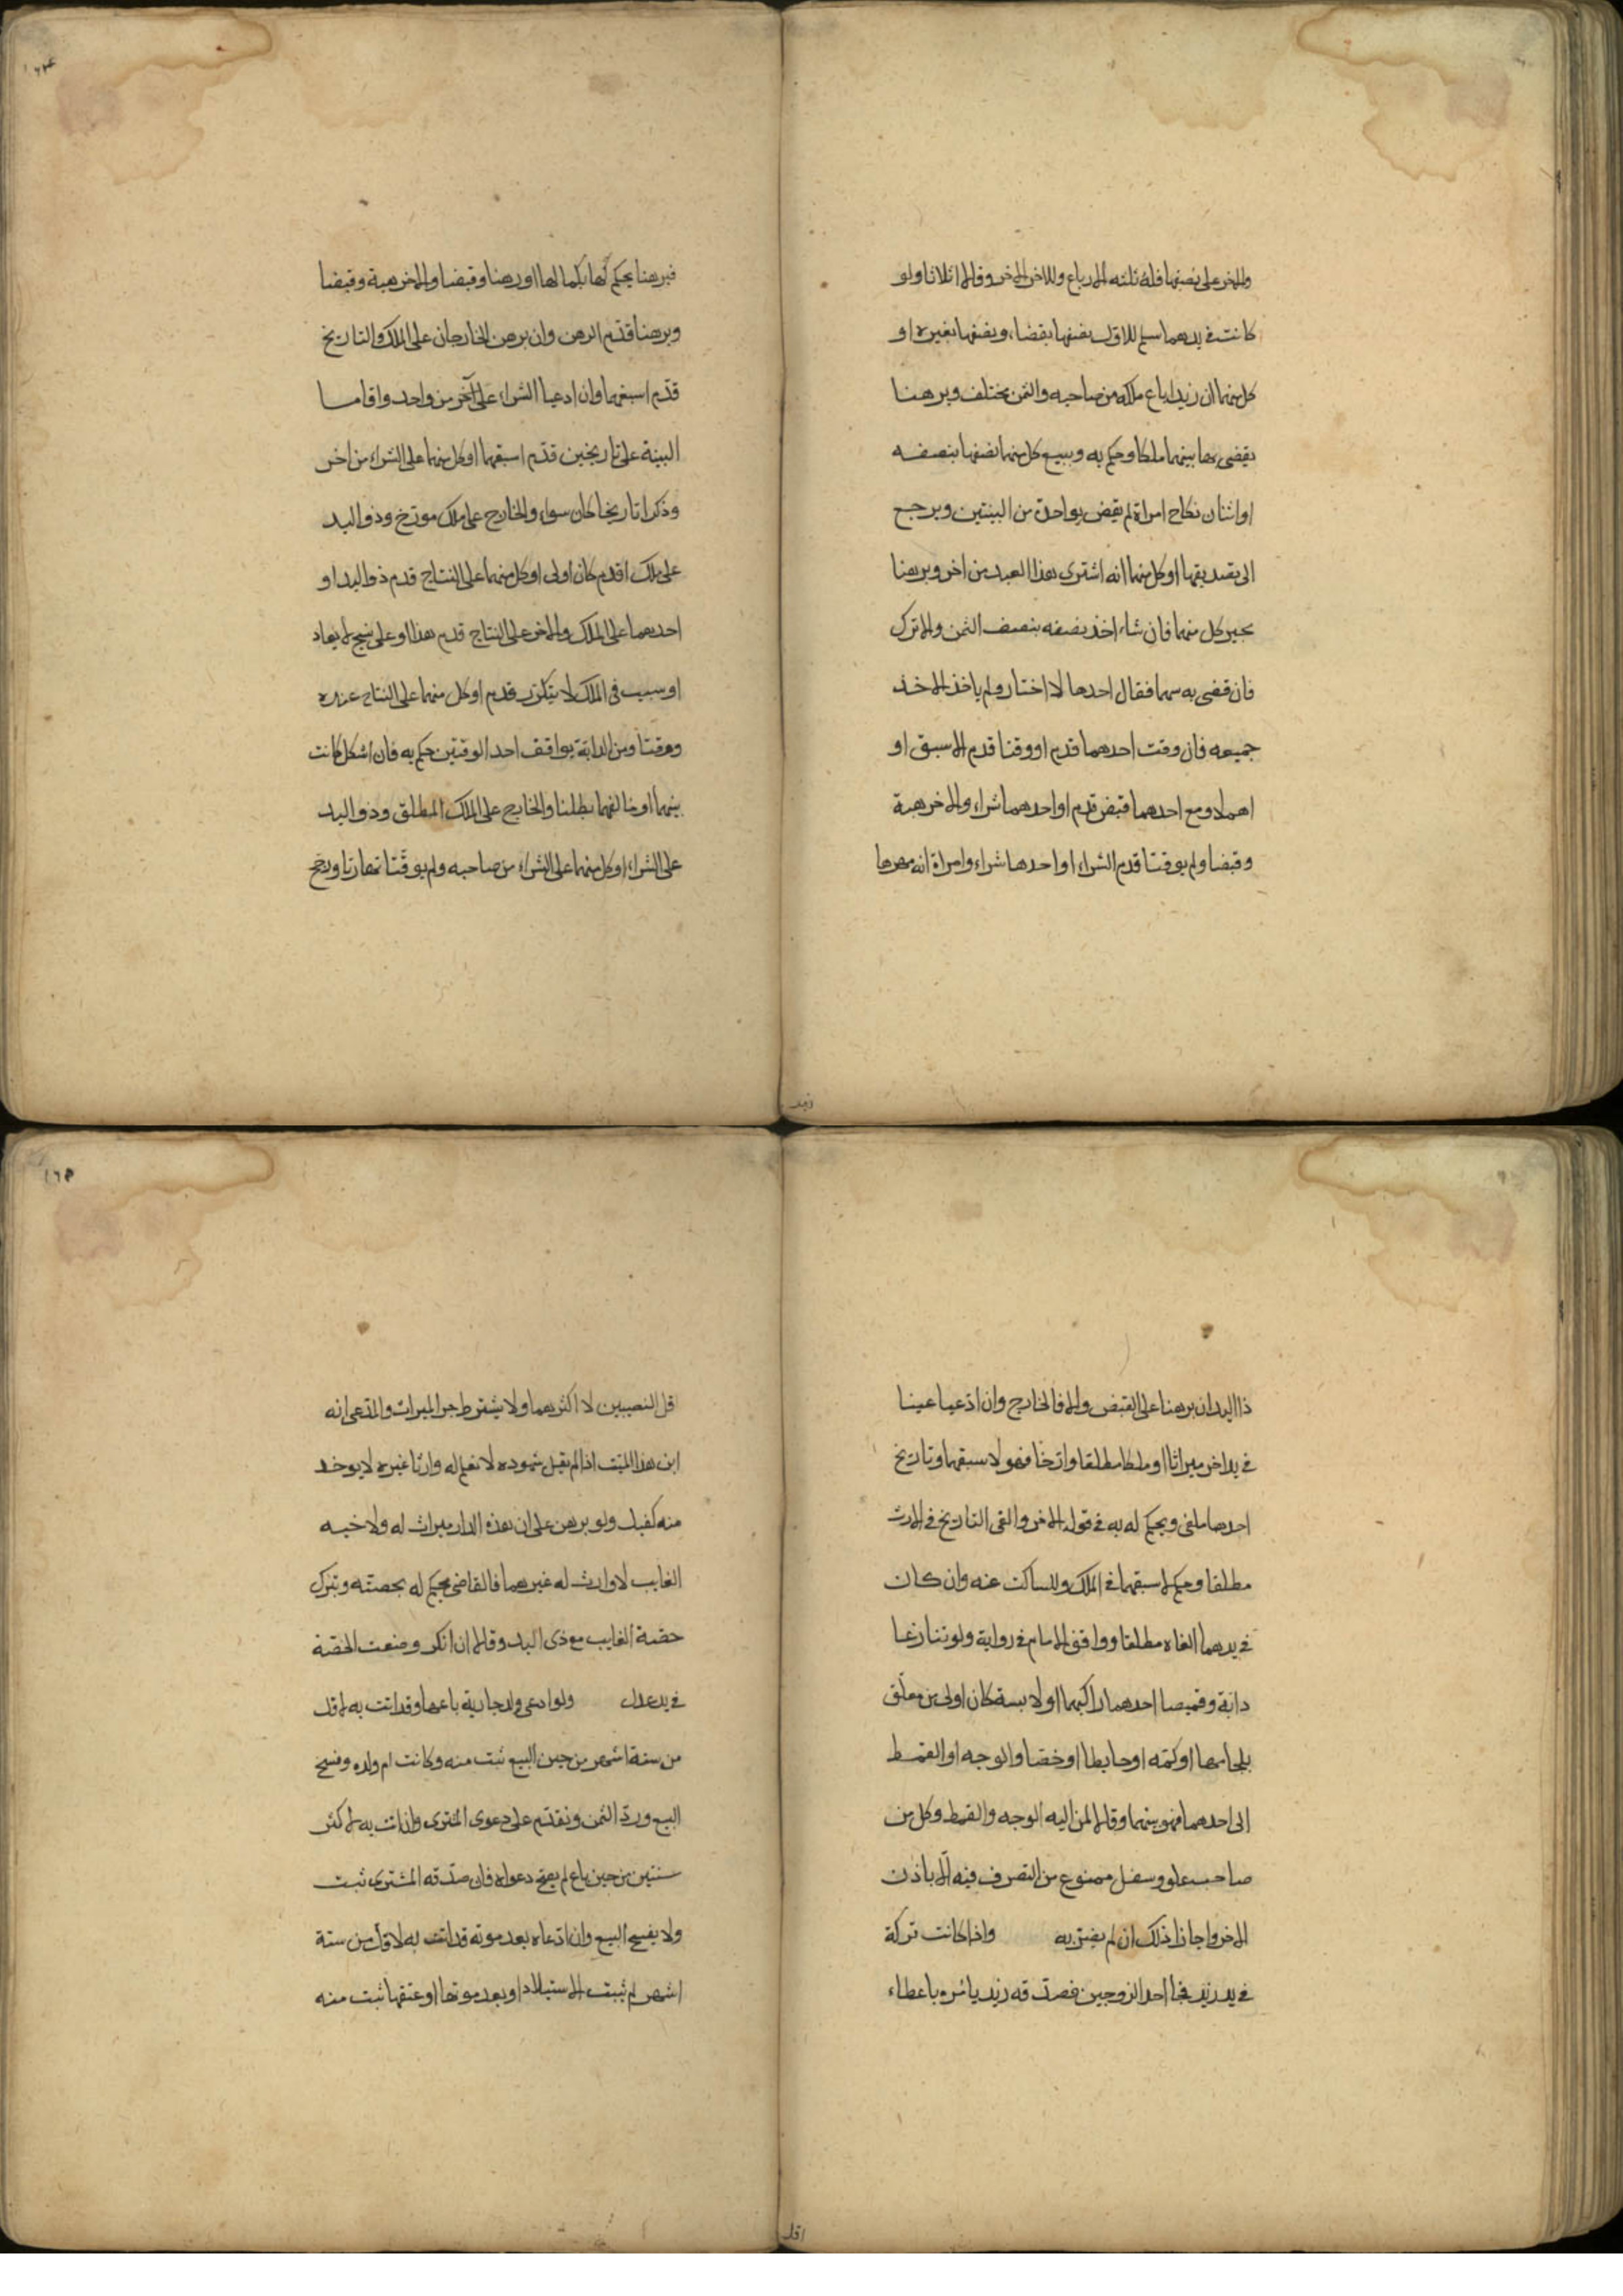 والاخر على نصفها فله ثلثه الارباع وللاخر الاخر وقالا اثلاثا ولو
كانت في يدهما سلم للاول نصفها بقضاء ونصفها بغيره او
كل منهما ان زيدا باع ملكه من صاحبه والثمن مختلف وبرهنا
يقضى بها بينهما ملكا وحكم به وببيع كل منهما نصفها بنصفه
او اثنان نكاح امراة لم يقض بواحدة من البينتين ويرجع
الى تصديقها او كل منهما انه اشترى هذا العبد من اخر وبرهنا
يخير كل منهما فان شاء اخذ نصفه بنصف الثمن والا ترك
فان قضى به بينهما فقال احدهما لا اختار ولم ياخذ الاخذ
جميعه فان وقت احدهما قدم او وقتا قدم الاسبق او
اهملا ومع احدهما قبض قدم او احدهما شراء والاخر هبة
وقبضا ولم يوقتا قدم الشراء او احدهما شراء وامراة انه مهرها
زيد
١٦٤
فبرهنا يحكم لها بكمالها او رهنا وقبضا والاخر هبة وقبضا
وبرهنا قدم الرهن وان برهن الخارجان على الملك والتاريخ
قدم اسبقهما وان ادعيا الشراء على آخر من واحد واقاما
البينة على تاريخين قدم اسبقهما او كل منهما على الشراء من اخر
وذكرا تاريخا كان سواء والخارج على ملك مورخ وذو اليد
على ملك اقدم كان اولى او كل منهما على النتاج قدم ذو اليد او
احدهما على الملك والاخر على النتاج قدم هذا او على نسج لا يعاد
او سبب في الملك لا يتكرر قدم او كل منهما على النتاج عنده
ووقتا وسن الدابة يوافق احد الوقتين حكم به فان اشكل كانت
بينهما او خالفهما بطلنا والخارج على الملك المطلق وذو اليد
على الشراء او كل منهما على الشراء من صاحبه ولم يوقتا تهاترتا ورجح
ذا اليد ان برهنا على القبض والا فالخارج وان ادعيا عينا
في يد اخر ميراثا او ملكا مطلقا وارخا فهو لاسبقهما وتاريخ
احدهما ملغى ويحكم له به في قوله الاخر والغى التاريخ في الارث
مطلقا وحكم لاسبقهما في الملك وللساكت عنه وان كان
في يدهما الغاه مطلقا ووافق الامام في رواية ولو تنازعا
دابة وقميصا احدهما راكبهما او لابسه كان اولى من معلق
بلجامها او كمه او حايطا او خصا والوجه او القمط
الى احدهما فهو بينهما وقالا لمن اليه الوجه والقمط وكل من
صاحب علو وسفل ممنوع من التصرف فيه الا باذن
الاخر واجازا ذلك ان لم يضر به واذا كانت تركة
في يد زيد فجا احد الزوجين فصدقه زيد يامره باعطاء
اقل
١٦٥
قل النصيبين لا اكثرهما ولا يشترط جر الميراث والمدعى انه
ابن هذا الميت اذا لم يقل شهوده لا نعلم له وارثا غيره لا يوخذ
منه كفيل ولو برهن على ان هذه الدار ميراث له ولاخيه
الغايب لا وارث له غيرهما فالقاضى يحكم له بحصته ويترك
حصة الغايب مع ذى اليد وقالا ان انكر وضعت الحصة
في يد عدل ولو ادعى ولد جارية باعها وقد اتت به لاقل
من ستة اشهر من حين البيع ثبت منه وكانت ام ولده وفسخ
البيع ورد الثمن ونقدم على دعوى المشترى وان اتت به لاكثر
سنتين من حين باع لم يصح دعواه فان صدقه المشترى ثبت
ولا يفسح البيع وان ادعاه بعد موته وقد اتت به لاقل من ستة
اشهر لم يثبت الاستيلاد او بعد موتها او عتقها ثبت منه